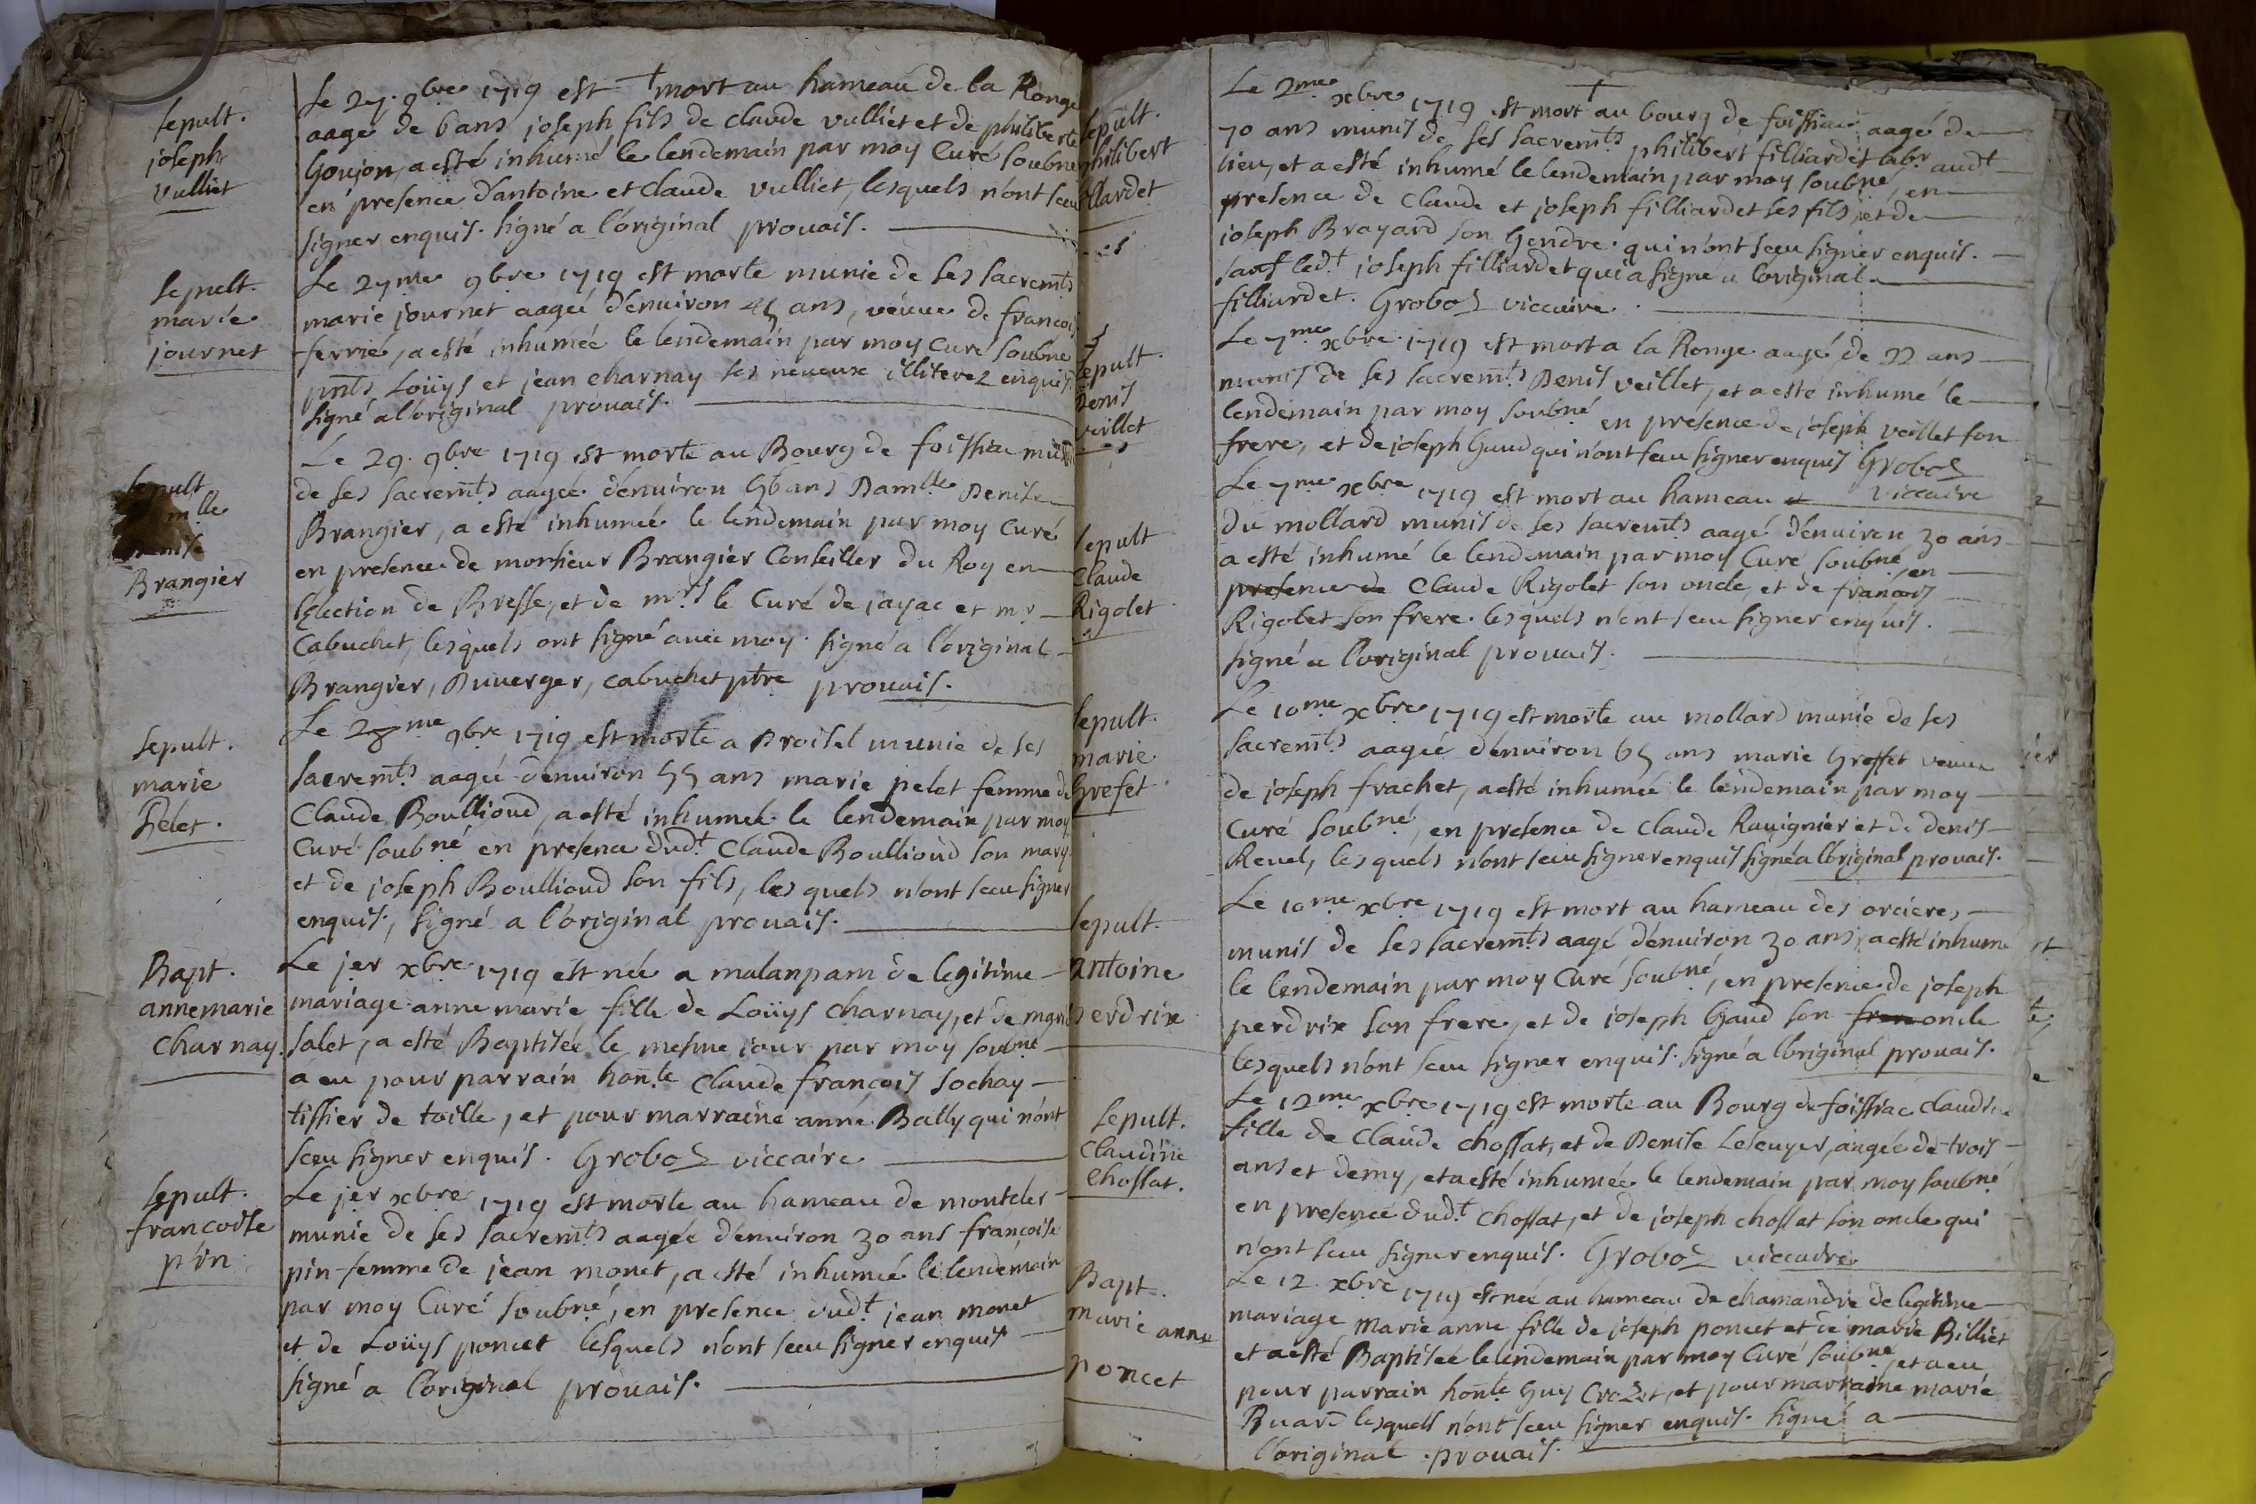 sepult.
joseph
vulliet
Le 27. 9bre 1719 est mort au hameau de la Ronge
aagé de 6 ans joseph fils de claude vulliet et de philiberte
Goujon, a esté inhumé le lendemain par moy Curé soubné
en presence d'antoine et claude vulliet, lesquels n'ont sceu
signer enquis. signé a l'original prouais.
sepult.
marie
journet
Le 27me 9bre 1719 est morte munie de ses sacremts
marie journet aagée d'enuiron 45 ans, veuue de francois
ferrié, a esté inhumée le lendemain par moy curé soubné
pnts Loüys et jean charnay ses neueux illiterez enquis
signé a l'original prouais.
sepult
mlle
Brangier
Le 29. 9bre 1719 est morte au Bourg de foissia munie
de ses sacremts aagée d'enuiron 56 ans Damlle Denise
Brangier, a esté inhumée le lendemain par moy Curé
en presence de monsieur Brangier Conseiller du Roy en
l'Election de Bresse, et de mrs le Curé de jayac et mr
Cabuchet, lesquels ont signé auec moy. signé a l'original
Brangier, Duuerger, cabuchet ptre prouais.
sepult.
marie
Pelet.
Le 28me 9bre 1719 est morte a Droisel munie de ses
sacremts aagée d'enuiron 55 ans marie pelet femme de
Claude Boullioud, a esté inhumée le lendemain par moy
Curé soubné en presence dudt Claude Boullioud son mary
et de joseph Boullioud son fils, lesquels n'ont sceu signer
enquis, signé a l'original prouais.
Bapt.
annemarie
Charnay.
Le jer xbre 1719 est née a malanpam de legitime
mariage anne marie fille de Loüys charnay, et de marie
salet, a esté Baptisée le mesme jour par moy soubné
a eu pour parrain hon.te claude françois sochay
tissier de toille, et pour marraine anne Bally qui n'ont
sceu signer enquis. Groboz viccaire
sepult.
francoise
pin
Le jer xbre 1719 est morte au hameau de montcler
munie de ses sacremts aagée d'enuiron 30 ans françoise
pin femme de jean monet, a esté inhumée le lendemain
par moy Curé soubné, en presence dudt jean monet
et de Loüys poncet lesquels n'ont sceu signer enquis
signé a l'original prouais.
sepult.
philibert
filliardet
Le 2me xbre 1719 est mort au bourg de foissiac aagé de
70 ans munis de ses sacremts philibert filliardet labr audt
lieu, et a esté inhumé le lendemain par moy soubné, en
presence de Claude et joseph filliardet ses fils, et de
joseph Brayard son Gendre. qui n'ont sceu signer enquis.
sauf ledt joseph filliardet qui a signé a l'original.
filliardet. Groboz viccaire.
sepult.
Denis
veillet
Le 7me xbre 1719 est mort a la Ronge aagé de 22 ans
munis de ses sacremts Denis veillet, et a esté inhumé le
lendemain par moy soubné en presence de joseph veillet son
frere, et de joseph Gaud qui n'ont sceu signer enquis Groboz
viccaire
sepult
Claude
Rigolet
Le 7me xbre 1719 est mort au hameau
du mollard munis de ses sacremts aagé d'enuiron 30 ans
a esté inhumé le lendemain par moy Curé soubné, en
presence de Claude Rigolet son oncle, et de francois
Rigolet son frere. lesquels n'ont sceu signer enquis.
signé a l'original prouais.
sepult.
marie
Grefet
Le 10me xbre 1719 est morte au mollard munie de ses
sacremts aagée d'enuiron 65 ans marie Greffet veuue
de joseph frachet, a esté inhumée le lendemain par moy
Curé soubné, en presence de Claude Rauignier et de denis
Reuel, lesquels n'ont sceu signer enquis signé a l'original prouais.
sepult.
antoine
perdrix
Le 10me xbre 1719 est mort au hameau des orcieres
munis de ses sacremts aagé d'enuiron 30 ans, a esté inhumé
le lendemain par moy Curé soubné, en presence de joseph
perdrix son frere, et de joseph Gaud son frere oncle
lesquels n'ont sceu signer enquis. signé a l'original prouais.
sepult.
Claudine
Chossat.
Le 12me xbre 1719 est morte au Bourg de foissiac claudine
fille de Claude chossat, et de Denise Leseuyer, aagée de trois
ans et demy, et a esté inhumée le lendemain par moy soubné
en presence dudt chossat, et de joseph chossat son oncle qui
n'ont sceu signer enquis. Groboz viccaire
Bapt.
marie anne
poncet
Le 12. xbre 1719 est née au hameau de chamandre de legitime
mariage marie anne fille de joseph poncet et de marie Billiet
et a esté Baptisée le lendemain par moy Curé soubné, et a eu
pour parrain hon.te Guy Crozet, et pour marraine marie
Buard lesquels n'ont sceu signer enquis. signé a
l'original. prouais.